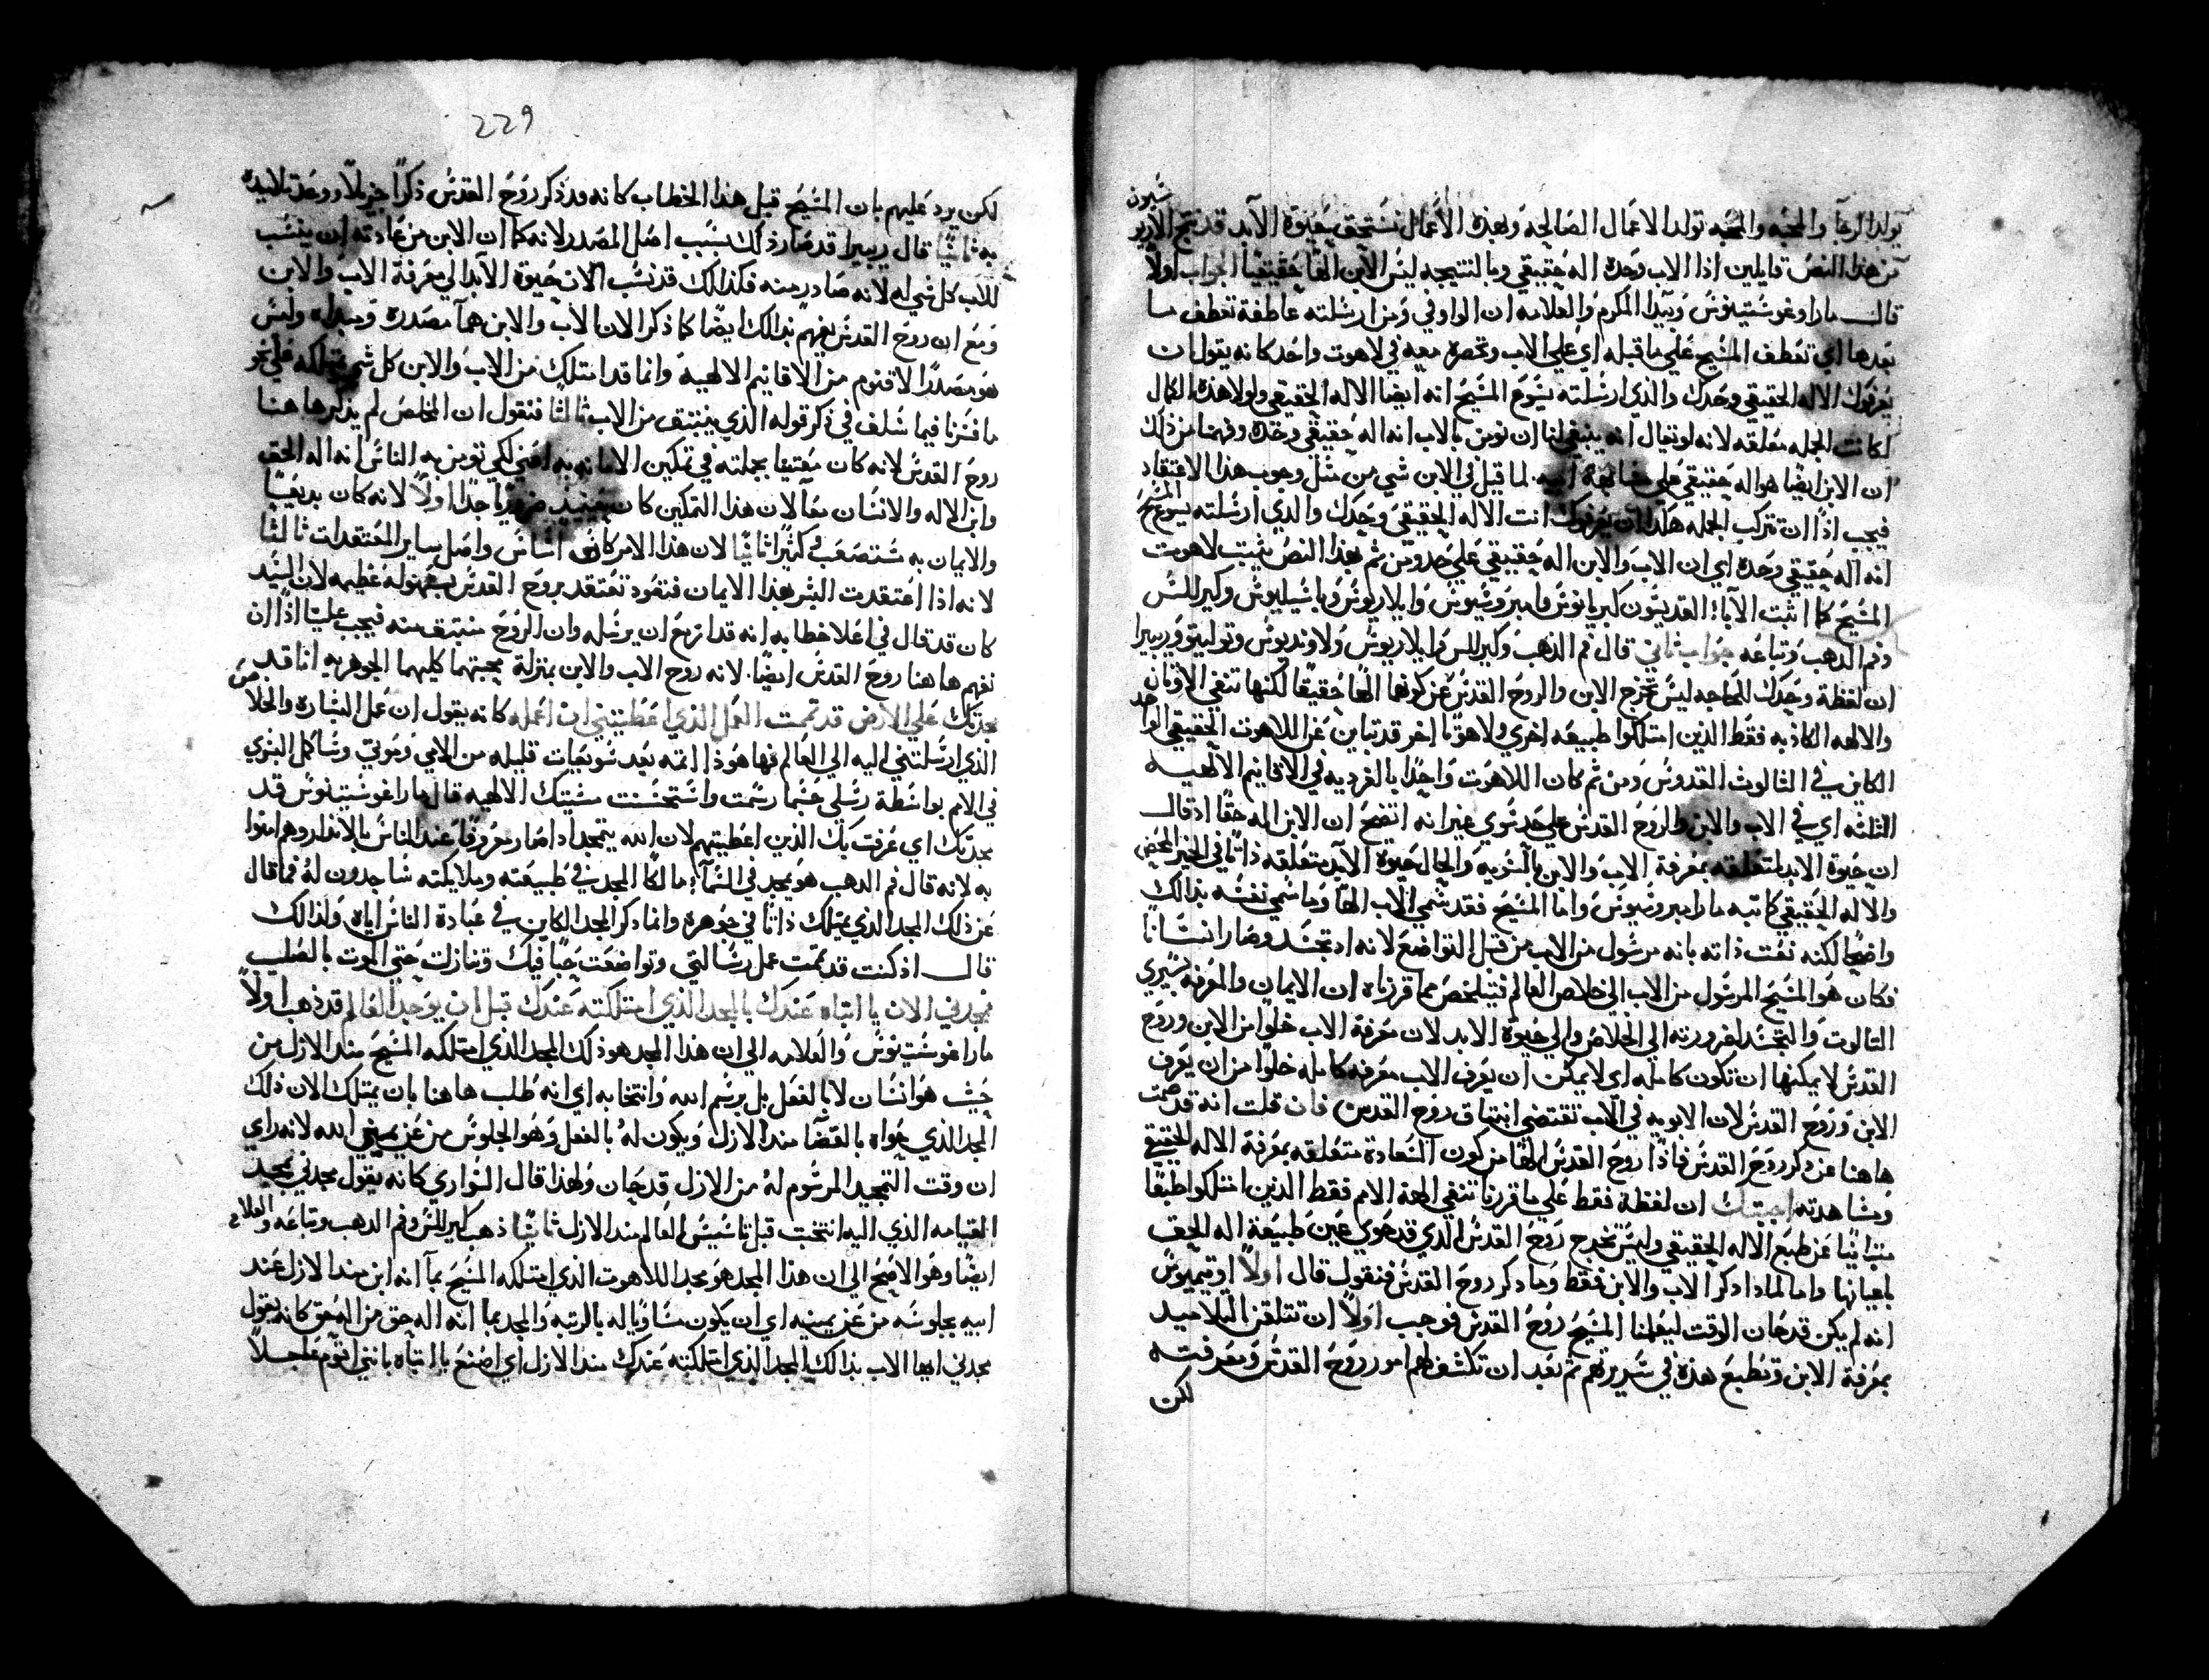 يولد الرجآ والمحبه والمحبه تولد الاعمال الصالحه وبهذه الاعمال نستحق حيوة الآبد قد نتج الاريو
سيون
من هذا النص قايلين اذا الاب وحده اله حقيقي وبالنتيجه ليس الابن الهًا حقيقيًا الجواب اولاً
قال مار اوغوستينوس وبيدا المكرم والعلامه ان الواو في ومن ارسلته عاطفة تعطف ما
بعدها اي تعطف المسيح علي ما قبله اي علي الاب وتحصره معه في لاهوت واحد كانه يقول ان
يعرفوك الاله الحقيقي وحدك والذي ارسلته يسوع المسيح انه ايضا الاله الحقيقي ولولا هذه الكمال
لكانت الجمله معلقه لانه لو تقال انه ينبغي لنا ان نومن بالاب انه اله حقيقي وحده وفهمنا من ذلك
ان الابن ايضًا هو اله حقيقي علي ابيه لما قيل في الابن شي من مثل وجوب هذا الاعتقاد
فيجب اذًا ان تتركب الجمله هكذا ان يعرفوك انت الاله الحقيقي وحدك والذي ارسلته يسوع المسيح
انه اله حقيقي وحده اي ان الاب والابن اله حقيقي علي حد ومن ثم بهذا النص يثبت لاهوت
المسيح كما اثبت الآباء القديسون كبريانوس وامبروسيوس وايلاريوس وباسيليوس وكيرللس
وفم الذهب وتباعه جواب ثاني قال فم الذهب وكيرللس وايلاريوس ولاونديوس وتوليتو وريبيرا
ان لفظة وحدك ليس تخرج الابن والروح القدس عن كونها الهًا حقيقًا لكنها تنفي الاوثان
والالهه الكاذبه فقط الذين امتلكوا طبيعه اخري ولاهوتًا اخر قد تباين عن اللاهوت الحقيقي الواحد
الكاين في الثالوث القدوس ومن ثم كان اللاهوت واحدًا بالفرديه في الاقانيم الالهيه
الثلثه اي في الاب والابن والروح القدس علي حد سوي غير انه اتضح ان الابن اله حقًا اذ قال
ان حيوة الابد متعلقه بمعرفة الاب والابن بالسويه والحال حيوة الآبد متعلقه ذاتًا في الخير المحض
والاله الحقيقي كما تبه مار امبروسيوس واما المسيح فقد سمي الاب الهًا وما سمي نفسه بذالك
واضحًا لكنه نعت ذاته بانه مرسول من الاب من قبل التواضع لانه اذ تجسد وصار انسانًا
فكان هو المسيح المرسول من الاب الي خلاص العالم فيتلخص مما قررناه ان الايمان والمعرفه بسري
الثالوث والتجسد ضرورته الي الخلاص والي حيوة الابد لان معرفة الاب خلوا من الابن وروح
القدس لا يمكنها ان تكون كامله اي لا يمكن ان يعرف الاب معرفه كامله خلوا من ان يعرف
الابن وروح القدس لان الابويه في الاب تقتضي انبثاق روح القدس فان قلت انه قد صمت
ها هنا عن ذكر روح القدس فاذًا روح القدس الهًا من كون السعادة متعلقه بمعرفة الاله الحقيقي
ومشاهدته اجبتك ان لفظة فقط علي ما قررنا تنفي الهة الامم فقط الذين امتلكوا طبعًا
متباينًا عن طبع الاله الحقيقي وليس تخرج روح القدس الذي قد حوي عين طبيعة اله الحق
باعيانها واما لماذا ذكر الاب والابن فقط وما ذكر روح القدس فنقول قال اولاً اوتيميوس
انه لم يكن قد حان الوقت ليعلمنا المسيح روح القدس فوجب اولاً ان تتلقن التلاميد
بمعرفة الابن وتطبع هذه في سريرتهم ثم بعد ان تكشف لهم امور روح القدس ومعرفته
لكن
229
لكن يرد عليهم بان المسيح قبل هذا الخطاب كانه قد ذكر روح القدس ذكرًا جزيلاً ووعد تلاميذه
به ثانيًا قال ريبيرا قد صار ذلك بسبب اصل المصدر لانه كما ان الابن من عادته ان ينسب
للاب كل شي له لانه صادر منه فكذالك قد نسب الان حيوة الآبد الي معرفة الاب والابن
ومع ان روح القدس يفهم بذالك ايضًا كما ذكر الان الاب والابن هما مصدره ومبداه وليس
هو مصدرًا لاقنوم من الاقانيم الالهية وانما قد امتلك من الاب والابن كل شي يمتلكه علي نحو
ما فسرنا فيما سلف في ذكر قوله الذي ينبثق من الاب ثالثًا فنقول ان المخلص لم يذكر ها هنا
روح القدس لانه كان معتنيا بجملته في تمكين الامانه به اعني لكي تومن به الناس انه اله الحق
وابن الاله والانسان معًا لان هذا التمكين كان حينيذ ضروريًا جدًا اولاً لانه كان بديعيًا
والايمان به مستصعب كثيرًا ثانيًا لان هذا الامر كانه اساس واصل ساير المعتقدات ثالثًا
لانه اذا اعتقدت البشر بهذا الايمان فتعود تعتقد بروح القدس بسهوله عظيمه لان السيد
كان قد قال في اعلا خطابه انه قد ازمع ان يرسله وان الروح منبثق منه فيجب علينا اذًا ان
نفهم ها هنا روح القدس ايضًا لانه روح الاب والابن بمنزلة محبتهما كليهما الجوهريه انا قد
مجدتك علي الارض قد تممت العمل الذي اعطيتني ان اعمله كانه يقول ان عمل البشاره والخلاص
الذي ارسلتني اليه الي العالم فها هوذا اتمه بعد سويعات قليله من الامي وموتي وسأكمل البنوي
في الامم بواسطة رسلي حسبما رسمت واستحسنت مشيتك الالهيه قال مار اغوستينوس قد
مجدتك اي عرفت بك الذين اعطيتهم لان الله يتمجد اذا صار معروفًا عند الناس بالانذار وهم امنوا
به لانه قال فم الدهب هو يمجد في السمآء مالكًا المجد في طبيعته وملايكته ساجدون له فما قال
عن ذلك المجد الذي يمتلك ذاتًا في جوهره وانما ذكر المجد الكاين في عبادة الناس اياه ولذالك
قال اذ كنت قد تممت عمل رسالتي وتواضعت حبًا فيك وتنازلت حتي الموت بالصليب
فمجدني الان يا ابتاه عندك بالمجد الذي امتلكته عندك قبل ان يوجد العالم قد ذهب اولاً
مار اغوستينوس والعلامه الي ان هذا المجد هو ذلك المجد الذي امتلكه المسيح منذ الازل من
حيث هو انسان لا بالفعل بل برسم الله وانتخابه اي انه طلب ها هنا بان يمتلك الان ذلك
المجد الذي حواه بالقضا منذ الازل ويكون له بالفعل وهو الجلوس من عن يميني الله لانه راي
ان وقت التمجيد المرسوم له من الازل قد حان ولهذا قال السواري كانه يقول مجدني بمجد
القيامه الذي اليه انتخبت قبل تاسيس العالم منذ الازل ثانيًا ذهب كيرللس وفم الدهب وتباعه والعلامه
ايضًا وهو الاصح الي ان هذا المجد هو مجد اللاهوت الذي امتلكه المسيح بمآ انه ابن منذ الازل عند
ابيه بجلوسه من عن يمينه اي ان يكون مساويًا له بالرتبه والمجد بما انه اله حق من اله حق كانه يقول
مجدني ايها الاب بذالك المجد الذي امتلكته عندك منذ الازل اي اصنع يا ابتاه بانني اقوم عاجلاً